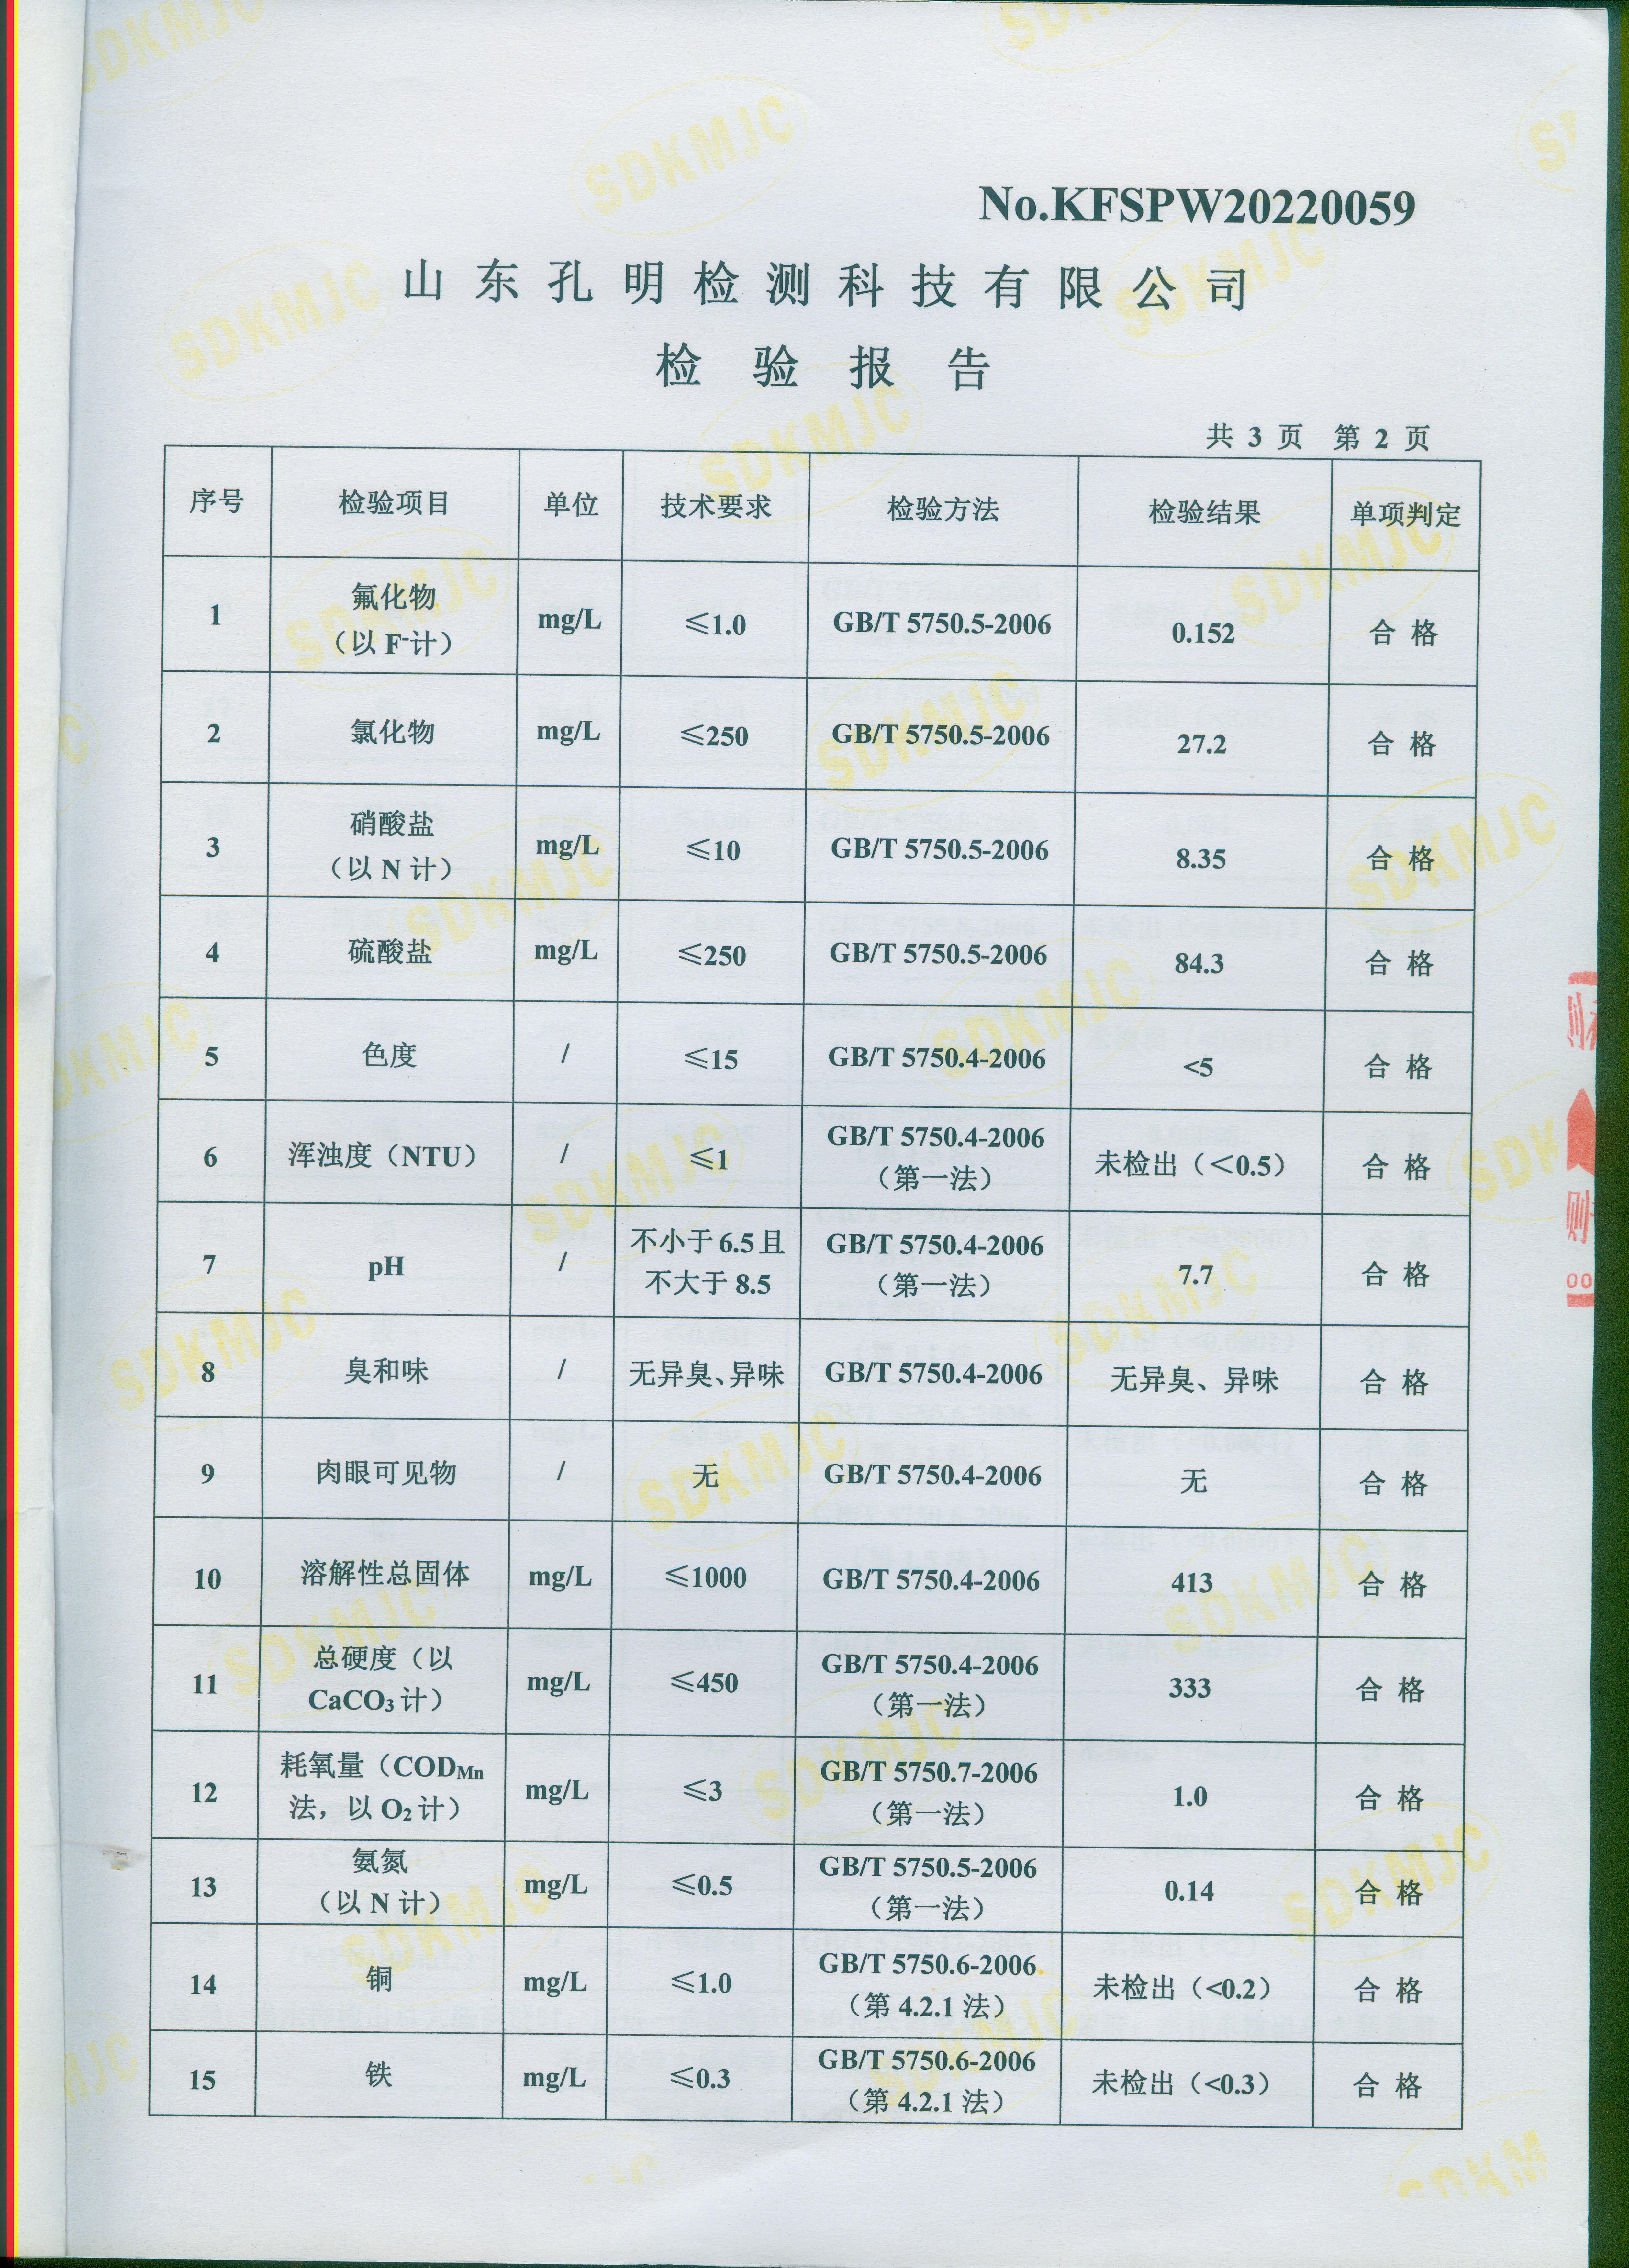 No.KFSPW20220059
山东孔明检测科技有限公司
检验报告
共 3 页 第 2 页
序号 检验项目 单位 技术要求 检验方法 检验结果 单项判定
1 氟化物 （以 F-计） mg/L ≤1.0 GB/T 5750.5-2006 0.152 合格
2 氯化物 mg/L ≤250 GB/T 5750.5-2006 27.2 合格
3 硝酸盐 （以 N 计） mg/L ≤10 GB/T 5750.5-2006 8.35 合格
4 硫酸盐 mg/L ≤250 GB/T 5750.5-2006 84.3 合格
5 色度 / ≤15 GB/T 5750.4-2006 <5 合格
6 浑浊度（NTU） / ≤1 GB/T 5750.4-2006 （第一法） 未检出（＜0.5） 合格
7 pH / 不小于 6.5 且 不大于 8.5 GB/T 5750.4-2006 （第一法） 7.7 合格
8 臭和味 / 无异臭、异味 GB/T 5750.4-2006 无异臭、异味 合格
9 肉眼可见物 / 无 GB/T 5750.4-2006 无 合格
10 溶解性总固体 mg/L ≤1000 GB/T 5750.4-2006 413 合格
11 总硬度（以 CaCO₃ 计） mg/L ≤450 GB/T 5750.4-2006 （第一法） 333 合格
12 耗氧量（CODMn 法，以 O₂ 计） mg/L ≤3 GB/T 5750.7-2006 （第一法） 1.0 合格
13 氨氮 （以 N 计） mg/L ≤0.5 GB/T 5750.5-2006 （第一法） 0.14 合格
14 铜 mg/L ≤1.0 GB/T 5750.6-2006 （第 4.2.1 法） 未检出（<0.2） 合格
15 铁 mg/L ≤0.3 GB/T 5750.6-2006 （第 4.2.1 法） 未检出（<0.3） 合格
SDKMJC